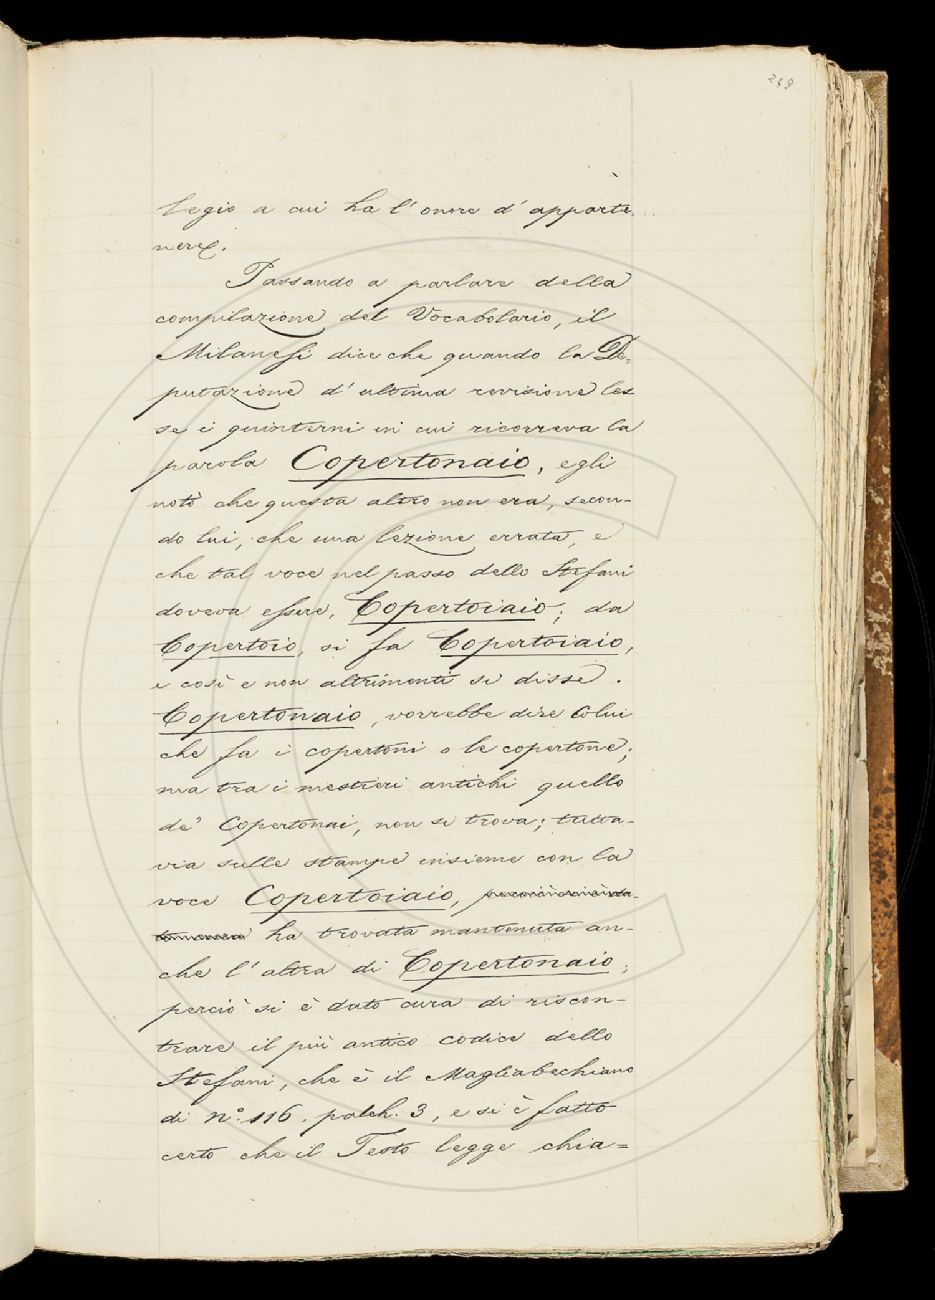 249
legio a cui ha l'onore d'apparte-
nere.
Passando a parlare della
compilazione del Vocabolario, il
Milanesi dice che quando la De-
putazione d'ultima revisione les
se i quinterni in cui ricorreva la
parola Copertonaio, egli
notò che questa altro non era, secon-
do lui, che una lezione errata, e
che tal voce nel passo dello Stefani
doveva essere, Copertoiaio; da
Copertoio, si fa Copertoiaio,
e così e non altrimenti si disse.
Copertonaio, vorrebbe dire Colui
che fa i copertoni o le copertone;
ma tra i mestieri antichi quello
de' Copertonai, non si trova; tutta-
via sulle stampe insieme con la
voce Copertoiaio,
ha trovata mantenuta an-
che l'altra di Copertonaio;
perciò si è dato cura di riscon-
trare il più antico codice dello
Stefani, che è il Magliabechiano
di n.° 116. palch. 3, e si è fatto
certo che il Testo legge chia=